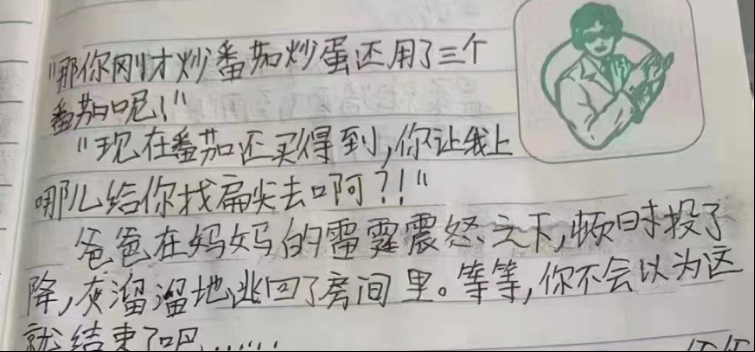 "那你刚才炒番茄炒蛋还用了三个
番茄呢!"
"现在番茄还买得到,你让我上
哪儿给你找扁尖去啊?!"
爸爸在妈妈的雷霆震怒之下,顿时投了
降,灰溜溜地逃回了房间里。等等,你不会以为这
就结束了吧……